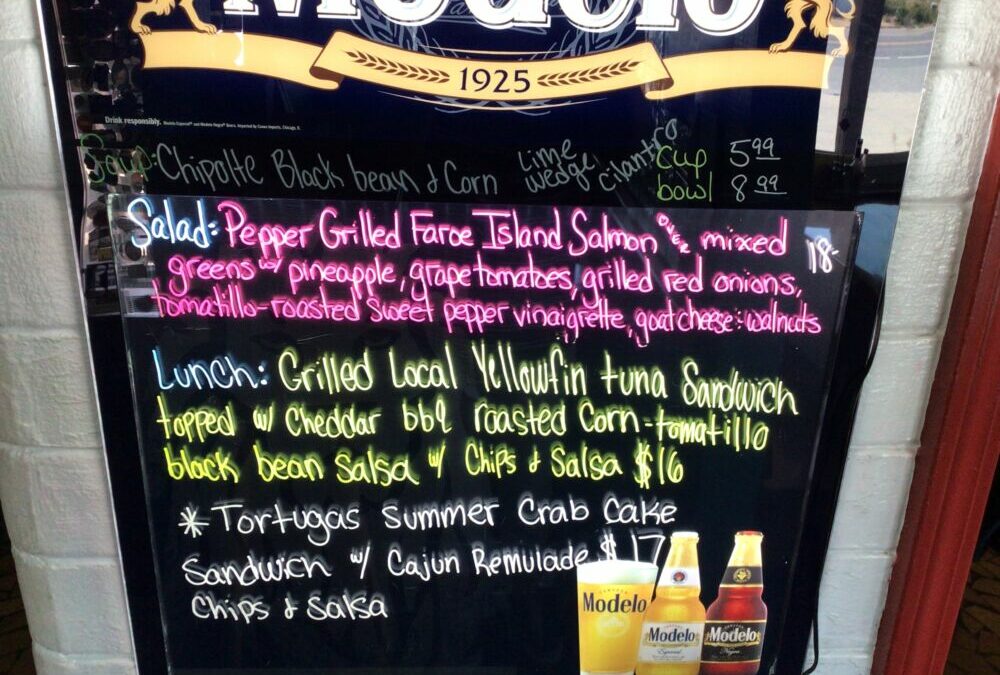 Modelo
1925
Drink responsibly.
Soup: Chipolte Black bean & Corn lime wedge cilantro cup 5.99
bowl 8.99
Salad: Pepper Grilled Faroe Island Salmon over mixed 18-
greens w/ pineapple, grape tomatoes, grilled red onions,
tomatillo-roasted sweet pepper vinaigrette, goat cheese : walnuts
Lunch: Grilled Local Yellowfin tuna Sandwich
topped w/ Cheddar bbq roasted Corn-tomatillo
black bean salsa w/ Chips & Salsa $16
* Tortugas Summer Crab Cake
Sandwich w/ Cajun Remulade $17
Chips & Salsa
Modelo
Modelo
Especial
Modelo
Negra